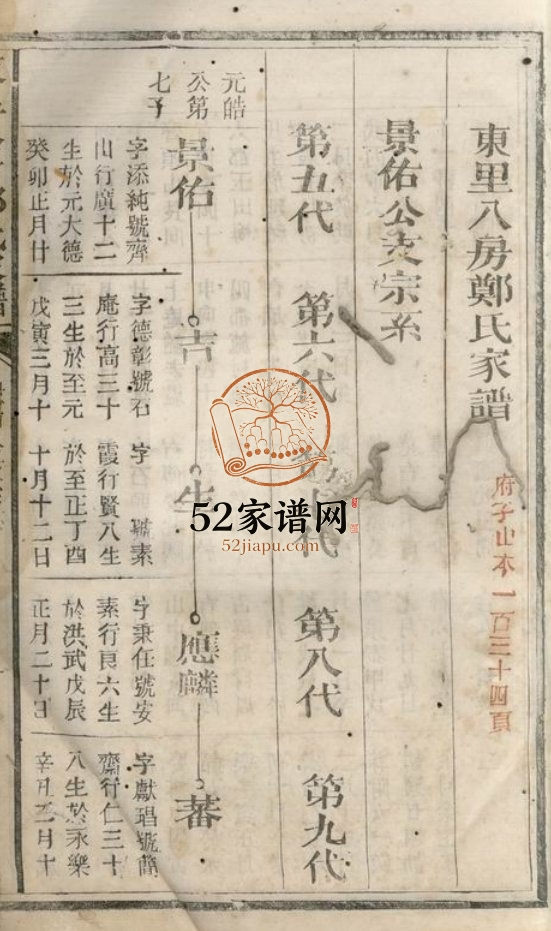 東里八房鄭氏家譜
府子山本一百三十四頁
景佑公支宗系
第五代
第六代
第七代
第八代
第九代
元皓
公第
七子
景佑
吉
生
應麟
蕃
字添純號齊
山行廣十二
生於元大德
癸卯正月廿
字德彰號石
庵行高三十
三生於至元
戊寅三月十
字 號素
霞行賢八生
於至正丁酉
十月十二日
字秉任號安
素行良六生
於洪武戊辰
正月二十日
字獻琩號簡
齋行仁三十
八生於永樂
辛丑 月十
52家谱网
52jiapu.com